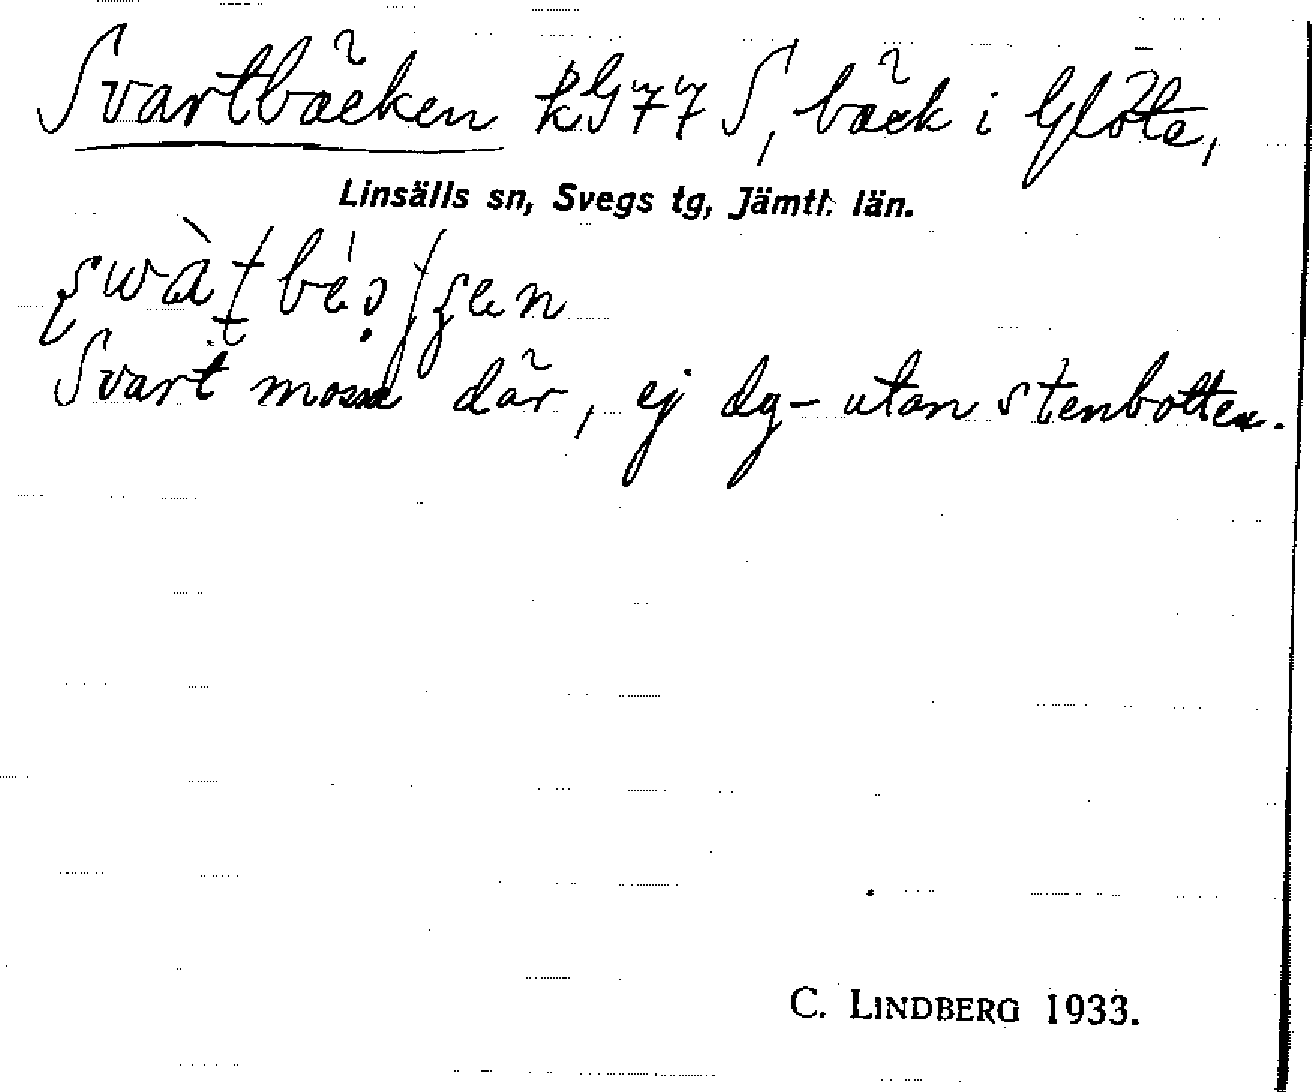 Svartbäcken kG77 S, bäck i Glöte,
Linsälls sn, Svegs tg, Jämtl. län.
Svart mosse där, ej dy- utan stenbotten.
C. LINDBERG 1933.